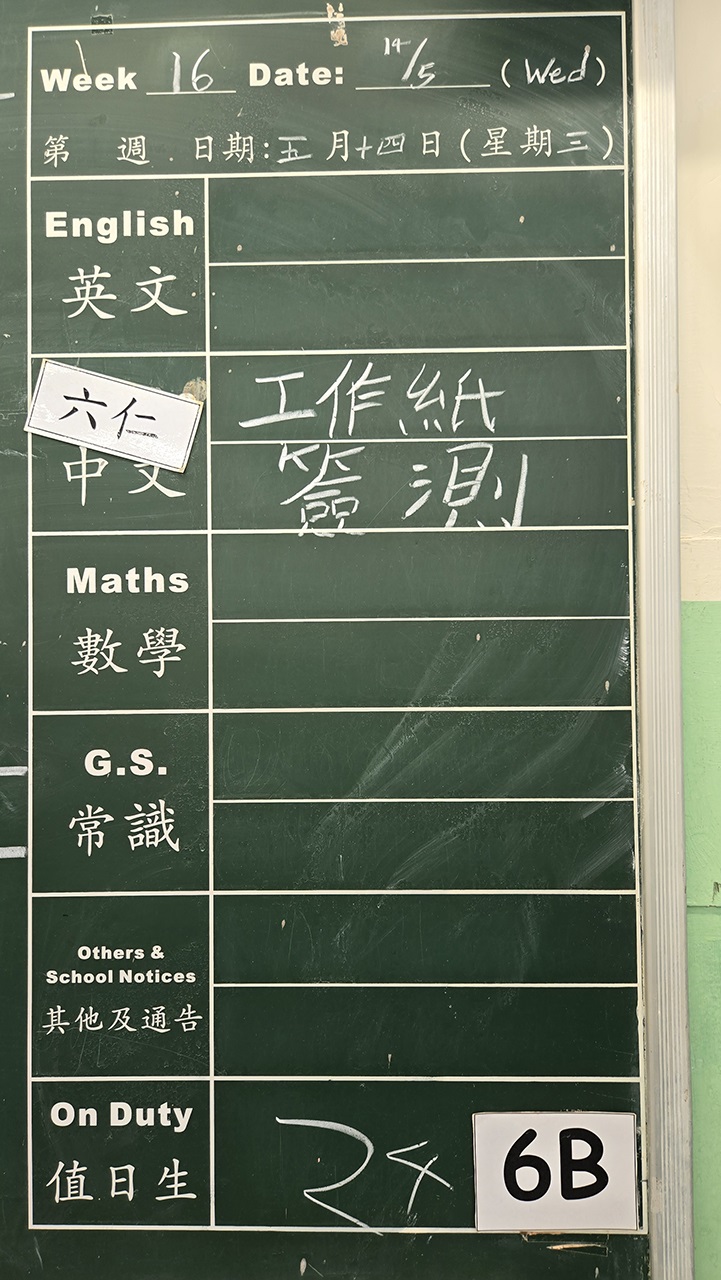 Week 16 Date: 14/5 (Wed)
第 週 日期:五月十四日(星期三)
English
英文
六仁
工作紙
中文
簽測
Maths
數學
G.S.
常識
Others &
School Notices
其他及通告
On Duty
值日生
24
6B